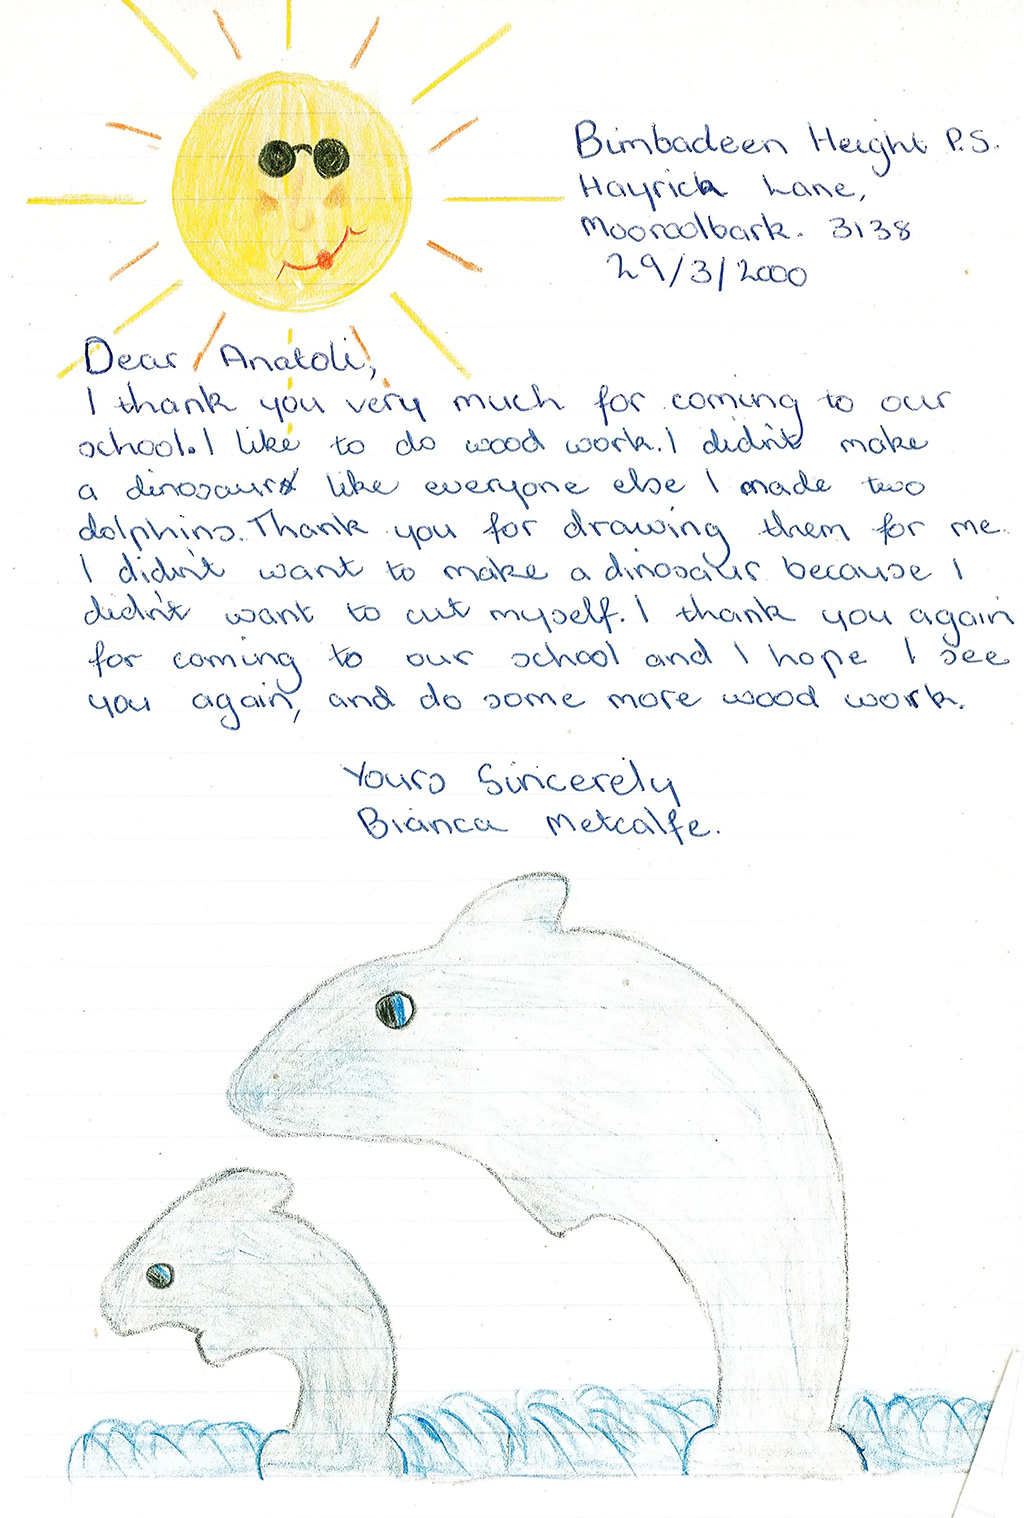 Bimbadeen Height P.S.
Hayrick Lane,
Mooroolbark. 3138
29/3/2000
Dear Anatoli,
I thank you very much for coming to our
school. I like to do wood work. I didn't make
a dinosaur like everyone else I made two
dolphins. Thank you for drawing them for me.
I didin't want to make a dinosaur because I
didn't want to cut myself. I thank you again
for coming to our school and I hope I see
you again, and do some more wood work.
Yours Sincerely
Bianca Metcalfe.